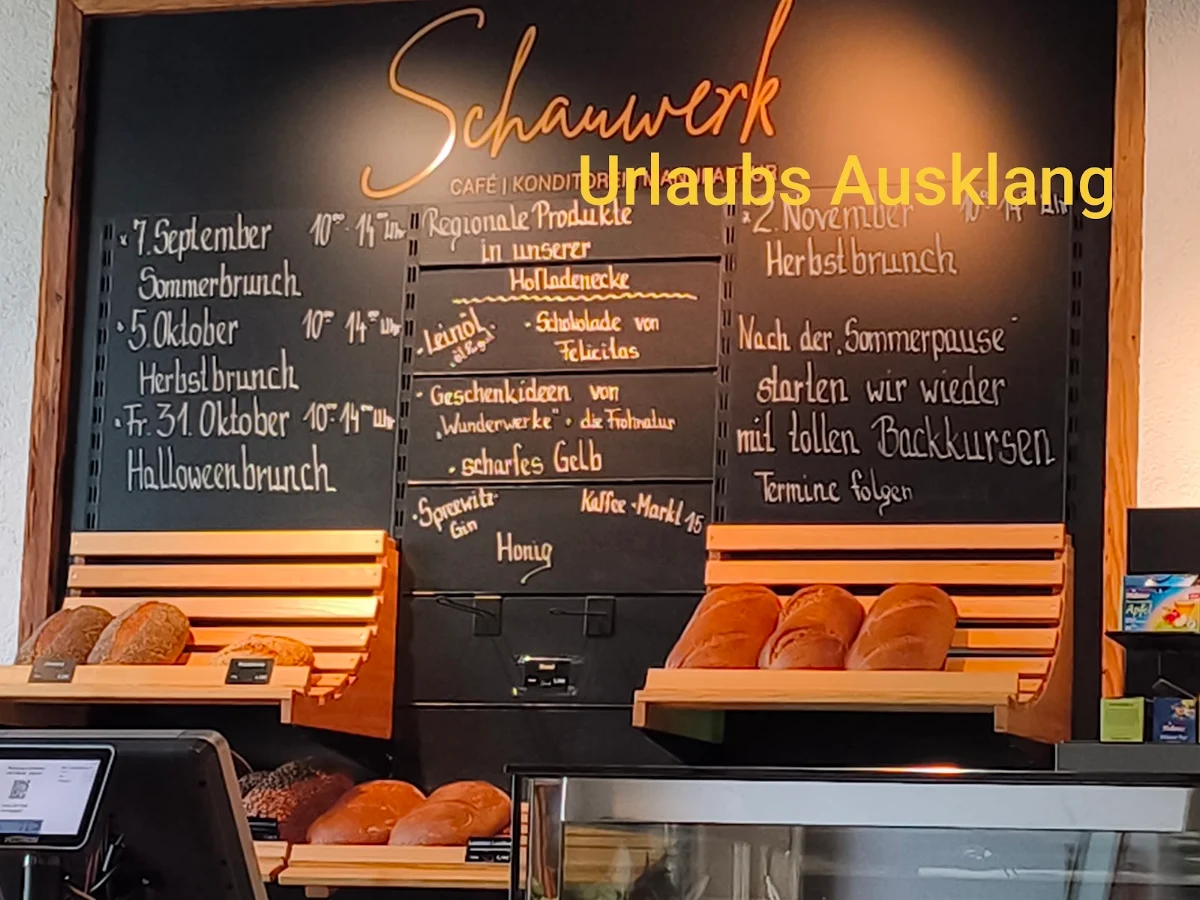 Schauwerk
CAFÉ | KONDITOREI MANUFAKTUR
Urlaubs Ausklang
7. September 10°° - 14°° Uhr
Sommerbrunch
5. Oktober 10°° 14°° Uhr
Herbstbrunch
Fr. 31. Oktober 10°° - 14°° Uhr
Halloweenbrunch
Regionale Produkte
in unserer
Hofladenecke
- Leinöl
- Schokolade von
Felicitas
- Geschenkideen von
„Wunderwerke" + die Frohnatur
- scharfes Gelb
- Spreewitz-
Gin
Kaffee - Markt 15
Honig
2. November 10°° 14°° Uhr
Herbstbrunch
Nach der Sommerpause
starten wir wieder
mit tollen Backkursen
Termine folgen
Apfel